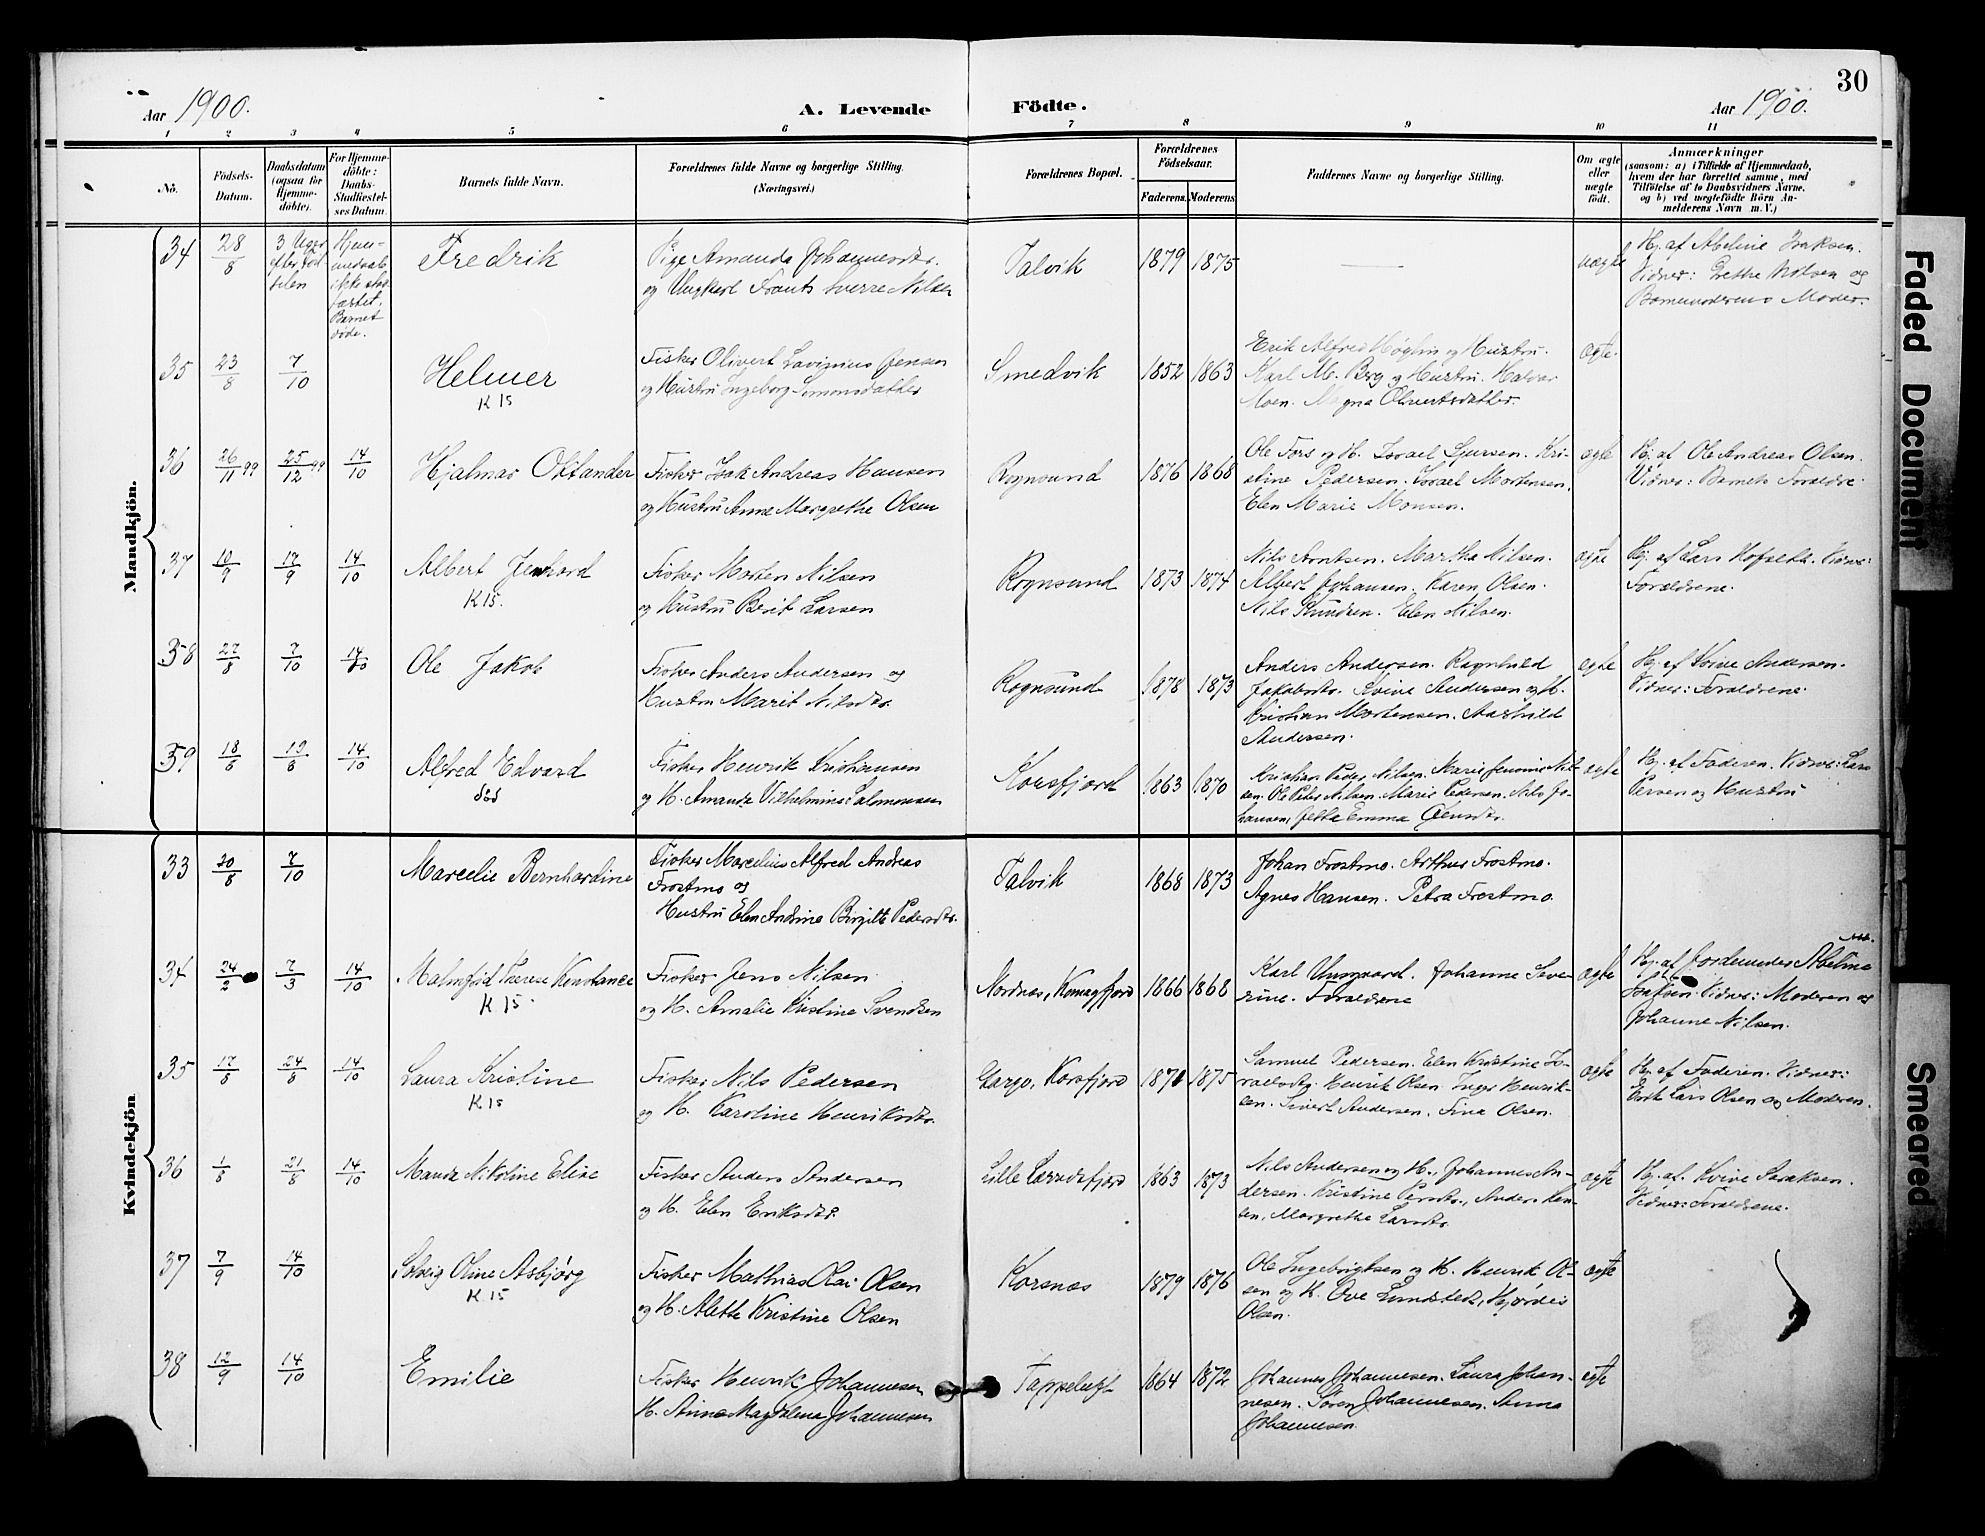 30
Aar 1900.
A. Levende Födte.
Aar 1900.
1 2 3 4 5 6 7 8 9 10 11
No.
Födsels-Datum.
Daabsdatum (ogsaa for Hjemme-döbte).
For Hjemme-döbte: Daabs-Stadfæstel-ses Datum.
Barnets fulde Navn.
Forældrenes fulde Navne og borgerlige Stilling.
(Næringsvei.)
Forældrenes Bopæl.
Forældrenes Födselsaar.
Faderens. Moderens.
Faddernes Navne og borgerlige Stilling.
Om ægte eller uægte födt.
Anmærkninger
(saasom: a) i Tilfælde af Hjemmedaab, hvem der har forrettet samme, med Tilföielse af to Daabsvidners Navne. og b) ved uægtefödte Börn An-melderens Navn m. V.)
Mandkjön.
34 28/8 3 Uger efter Föd-selen Hjem-medaab ikke stad-fæstet. Barnet döde.
Fredrik
Pige Amanda Johannesdtr.
og Ungkarl Frants Sverre Nilsen
Talvik 1879 1875 — uægte
Hj. af Abeline Isaksen.
Vidner: Grethe Nilsen og
Barnemoderens Moder.
35 23/8 7/10
Helmer
K 15
Fisker Olivert Lavinius Jensen
og Hustru Ingeborg Simonsdatter
Smedvik 1852 1863
Erik Alfred Höglin og Hustru.
Karl M. Berg og Hustru. Halvar
Moen. Magna Olivertsdatter.
ægte.
36 26/11 99 25/12 99 14/10
Hjalmar Ottander
Fisker Isak Andreas Hansen
og Hustru Anne Margrethe Olsen
Rognsund 1876 1868
Ole Fors og H. Israel Sjursen. Kri-
stine Pedersen. Israel Mortensen.
Elen Marie Monsen.
ægte
Hj. af Ole Andreas Olsen.
Vidner: Barnets Forældre.
37 10/9 17/9 14/10
Albert Jenhard
K 15.
Fisker Morten Nilsen
og Hustru Berit Larsen
Rognsund 1873 1874
Nils Arntsen. Martha Nilsen.
Albert Johansen. Karen Olsen.
Nils Knudsen. Elen Nilsen.
ægte
Hj. af Lars Hofseth. Vidner:
Forældrene.
38 27/8 7/10 14/10
Ole Jakob
Fisker Anders Andersen og
Hustru Marit Nilsdtr.
Rognsund 1878 1873
Anders Andersen. Ragnhild
Jakobsdtr. Kvive Andersen og H.
Kristian Mortensen. Aashild
Andersen.
ægte
Hj. af Kvive Andersen.
Vidner: Forældrene.
39 18/6 19/8 14/10
Alfred Edvard
död
Fisker Henrik Kristiansen
og H. Amanda Vilhelmine Salomonsen
Korsfjord 1863 1870
Kristian Peder Nilsen. Marie Jensine Nil-
sen. Ole Peter Nilsen. Marie Pedersen. Nils Jo-
hansen, Jetta Emma Olsensdtr.
ægte
Hj. af Faderen. Vidner: Lars
Persen og Hustru
Kvindekjön
33 20/8 7/10
Marcelie Bernhardine
Fisker Marcelius Alfred Andreas
Frostmo og
Hustru Elen Andrine Birgitte Pedersdtr.
Talvik 1868 1873
Johan Frostmo. Arthur Frostmo.
Agnes Hansen. Petra Frostmo.
34 24/2 7/3 14/10
Malmfrid Therese Konstance
K 15.
Fisker Jens Nilsen
og H. Amalie Kristine Svendsen
Nordnæs, Komagfjord 1866 1868
Karl Unsgaard. Johanne Seve-
rine. Forældrene
ægte
Hj. af Jordemoder Abeline
Isaksen. Vidner: Moderen og
Johanne Nilsen.
35 17/8 24/8 14/10
Laura Kristine
K 15
Fisker Nils Pedersen
og H. Karoline Henriksdtr.
Gargo, Korsfjord 1871 1875
Samuel Pedersen. Elen Kristine Is-
raelsdtr. Henrik Olsen. Inger Henrik-
sen. Sivert Andersen. Fina Olsen.
ægte
Hj. af Faderen. Vidner:
Erik Lars Olsen og Moderen.
36 1/8 21/8 14/10
Manda Nikoline Elise
Fisker Anders Andersen
og H. Elen Eriksdtr.
Lille Lerresfjord 1863 1873
Nils Andersen og H., Johannes An-
dersen. Kristine Persdtr., Anders Han-
sen, Margrethe Larsdtr.
ægte
Hj. af. Kvive Isaksen.
Vidner: Forældrene.
37 7/9 14/10
Solveig Oline Asbjørg
K 15
Fisker Mathias Kai Olsen
og H. Alette Kristine Olsen
Korsnæs 1879 1876
Ole Ingebrigtsen og H. Henrik Ol-
sen og H. Ove Lundstedt, Hjørdis
Olsen.
ægte
38 12/9 14/10
Emilie
Fisker Henrik Johannesen
H. Anna Magdalena Johannesen
Tappeluft 1864 1872
Johannes Johannesen. Laura Johan-
nesen. Søren Johannesen. Anna
Johannesen.
ægte
Faded Document
Smeared